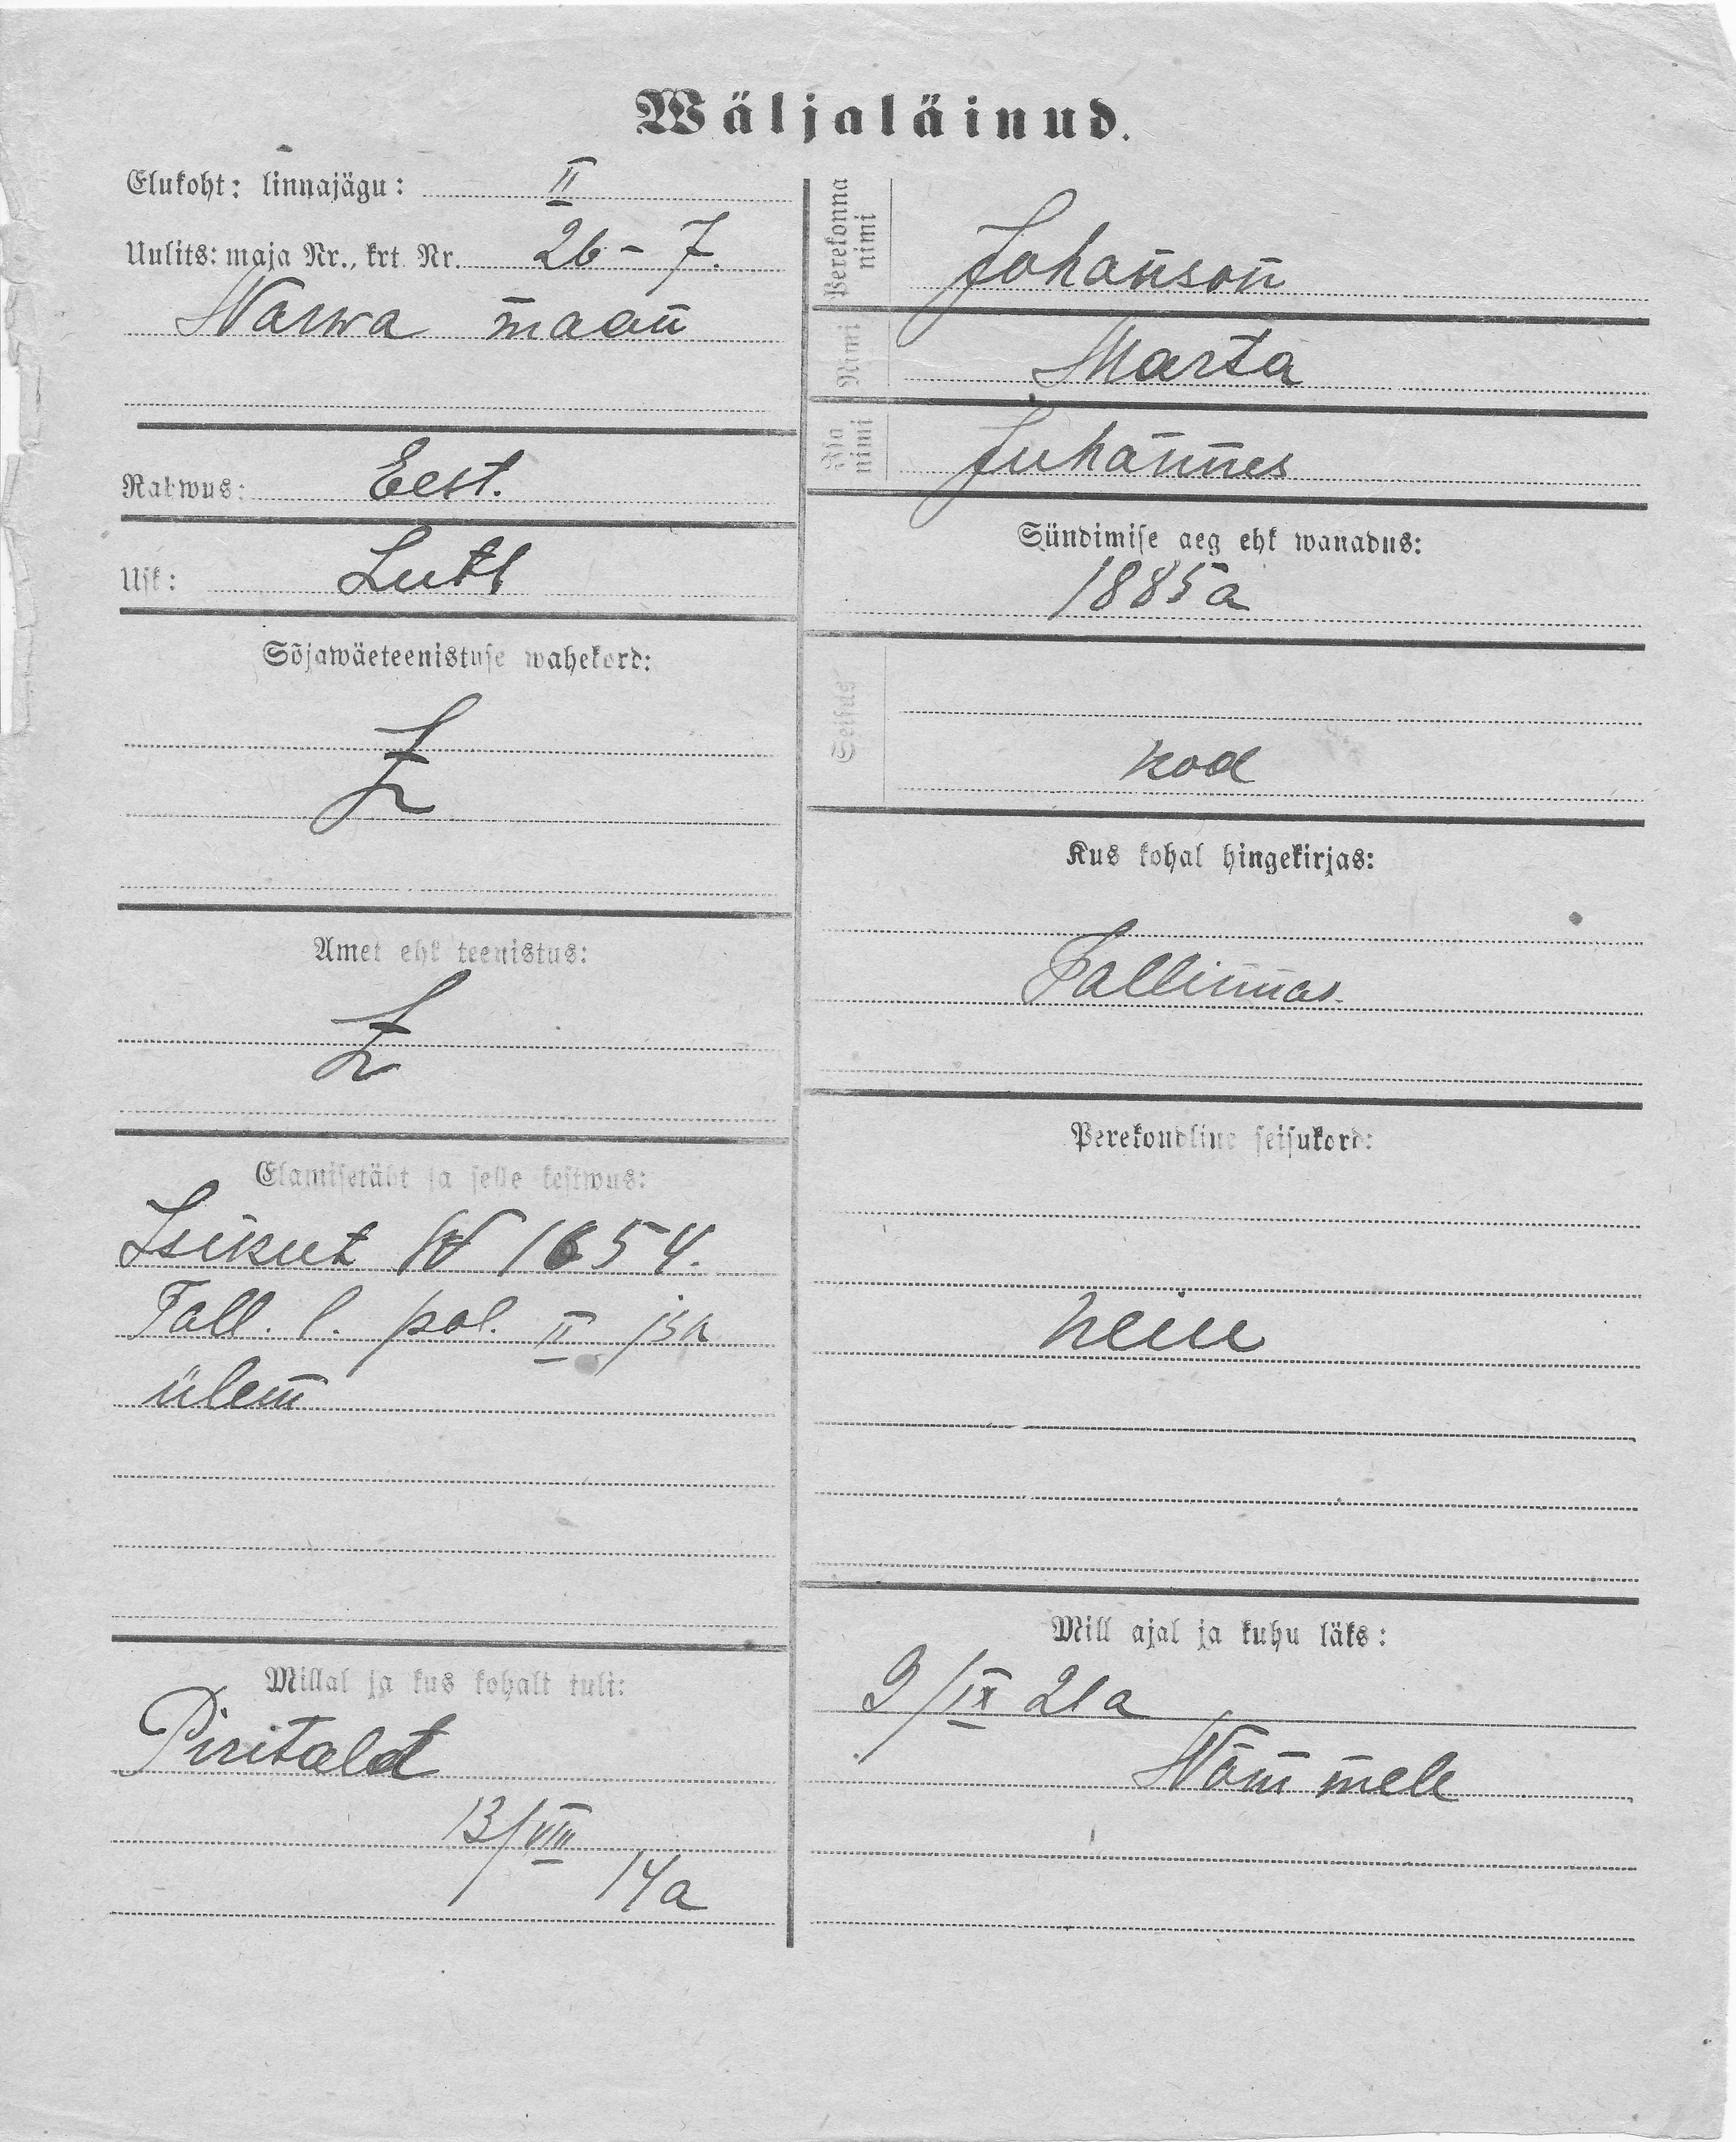 Wäljaläinud.
Elukoht: linnajägu: II
Uulits: maja Nr., krt. Nr. 26 - 7.
Narwa maan
Rahwus: Eest.
Usk: Lutt
Sõjawäeteenistuse wahekord:
Amet ehk teenistus:
Elamisetäht ja selle kestwus:
Isikut N 1654.
Tall. l. pol. II jsk
ülem
Millal ja kus kohalt tuli:
Piritalt
13/VIII
14a
Perekonna nimi
Johanson
Nimi
Marta
Isa nimi
Juhannes
Sündimise aeg ehk wanadus:
1885a
Seisus
kod
Kus kohal hingekirjas:
Tallinnas.
Perekondline seisukord:
neiu
Mill ajal ja kuhu läks:
9/IX 21a
Nõmmele